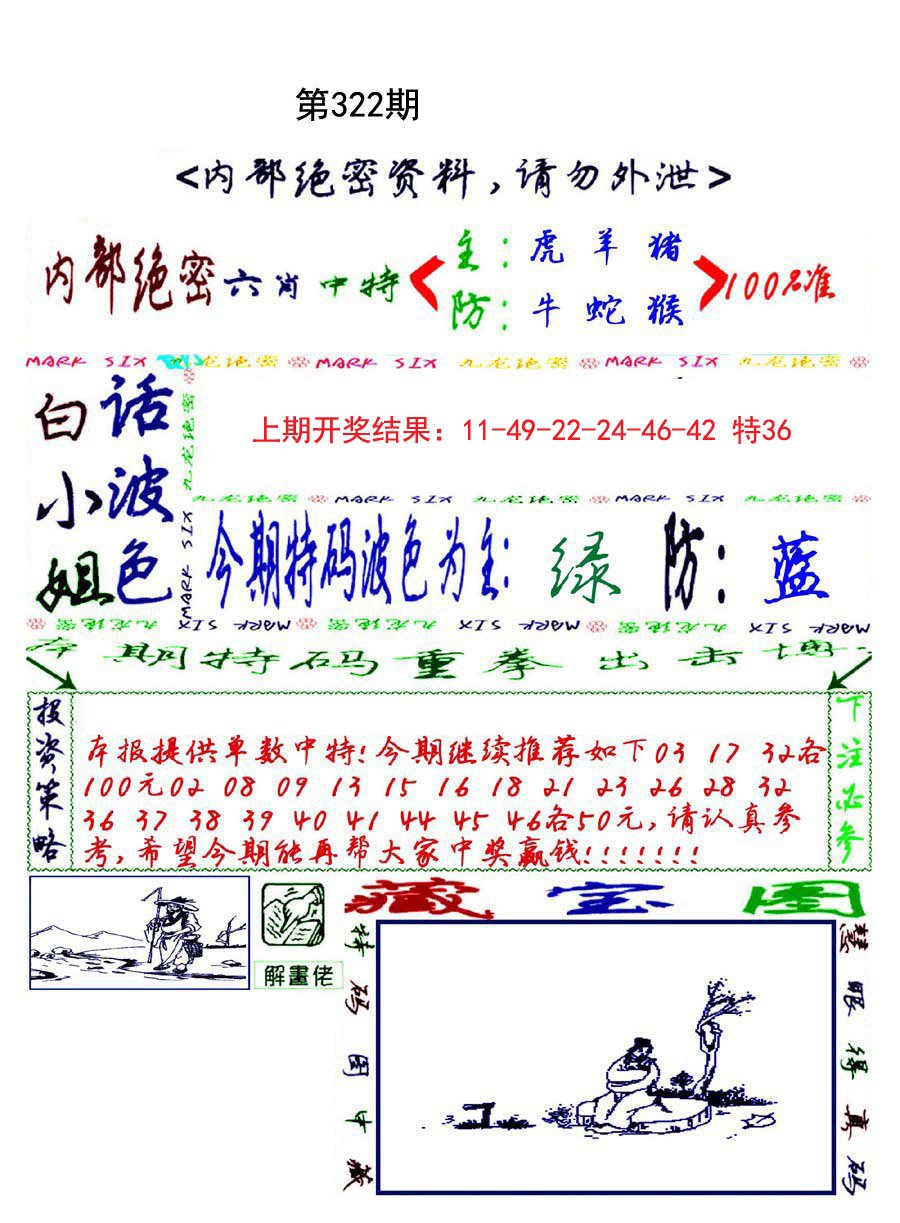 第322期
<内部绝密资料,请勿外泄>
内部绝密六肖中特
主:虎 羊 猪
防:牛 蛇 猴
100%准
MARK SIX 九龙绝密 MARK SIX 九龙绝密 MARK SIX 九龙绝密
白小姐
话波色
九龙绝密
MARK SIX
上期开奖结果：11-49-22-24-46-42 特36
九龙绝密 MARK SIX 九龙绝密 MARK SIX 九龙绝密
今期特码波色为主:绿 防:蓝
九龙绝密 MARK SIX 九龙绝密 MARK SIX 九龙绝密 MARK SIX
本期特码重拳出击
投资策略
本报提供单数中特!今期继续推荐如下03 17 32各
100元02 08 09 13 15 16 18 21 23 26 28 32
36 37 38 39 40 41 44 45 46各50元,请认真参
考,希望今期能再帮大家中奖赢钱!!!!!!!
下注必参
解畫佬
藏宝图
特码图中藏
慧眼得真码